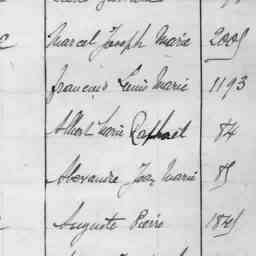 Marcel Joseph Marie 2009
François Louis Marie 1193
Albert Marie Raphael 84
Alexandre Jean Marie 89
Auguste Pierre 1849